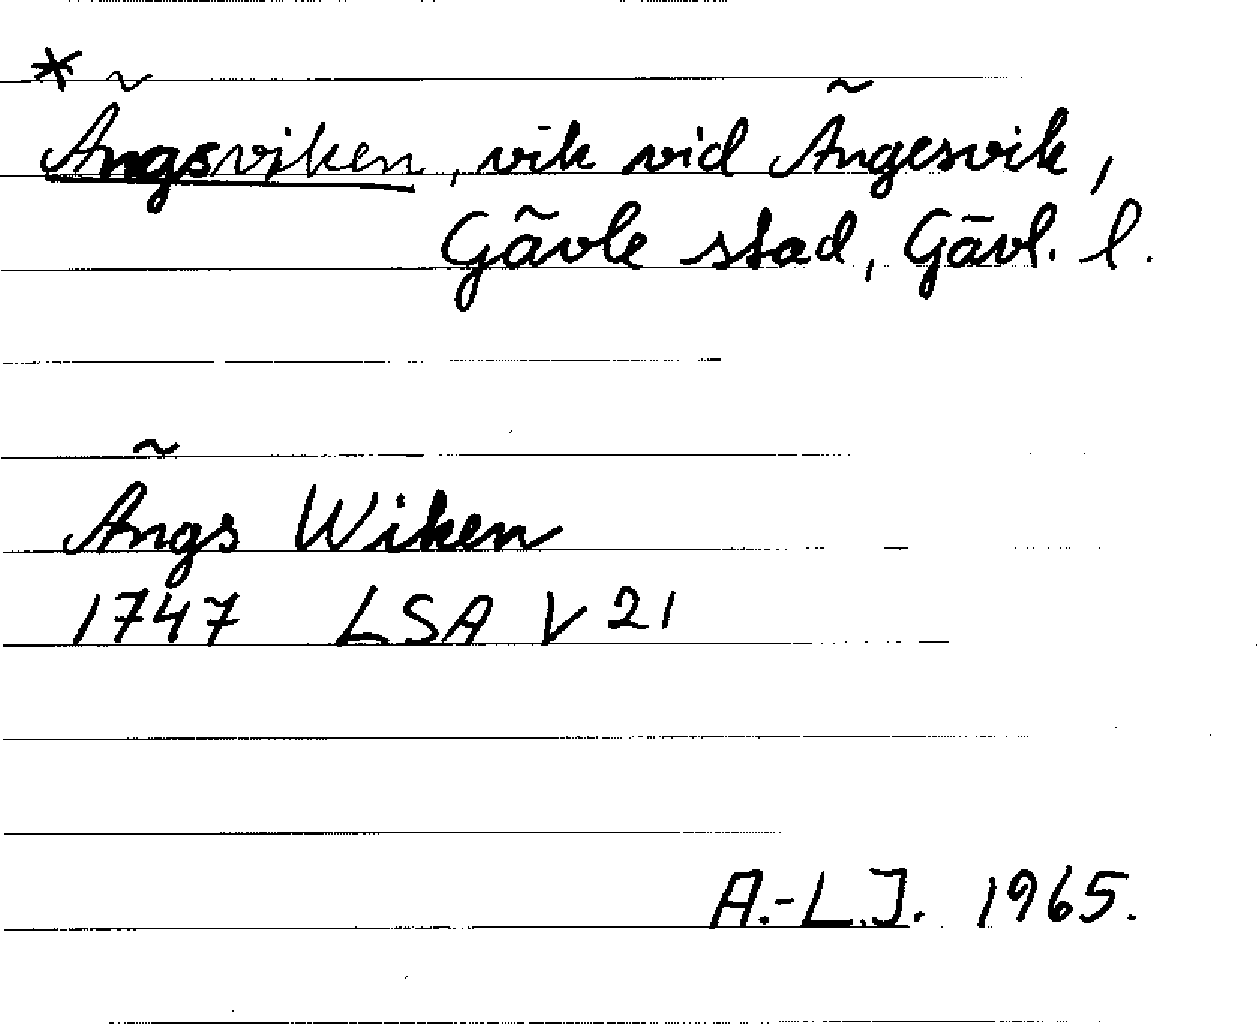 * Ängsviken, vik vid Ängesvik,
Gävle stad, Gävl. l.
Ängs Wiken
1747 LSA V 21
A.-L.J. 1965.